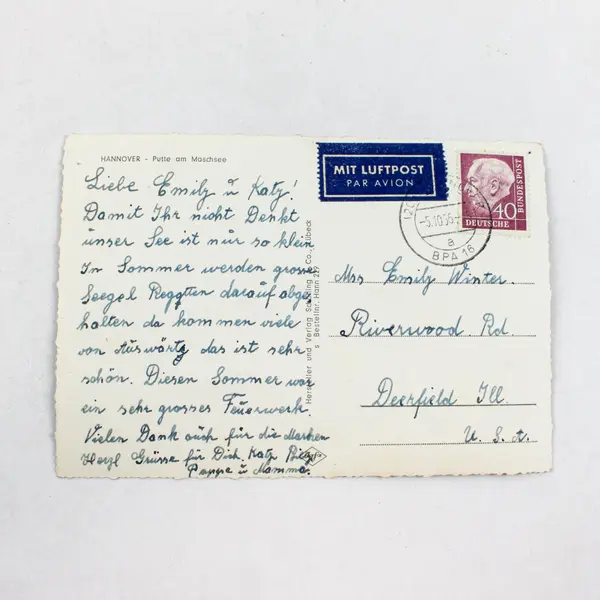 HANNOVER - Putte am Maschsee
Liebe Emily u Katy!
Damit Ihr nicht Denkt
unser See ist nur so klein
In Sommer werden grosse
Seegel Regatten darauf abge-
halten da kommen viele
von Auswärtz das ist sehr
schön. Diesen Sommer war
ein sehr grosses Feuerwerk.
Vielen Dank auch für die Marken
Herzl Grüsse für Dich Katy
Pappe u Mamma.
Hersteller und Verlag Schöning & Co., Lübeck
s Bestellnr. Hann 227
MIT LUFTPOST
PAR AVION
DEUTSCHE
BUNDESPOST
40
-5.10.56-
a
BPA 16
Mss Emily Winter.
Riverwood Rd
Deerfield Ill.
U. S. A.